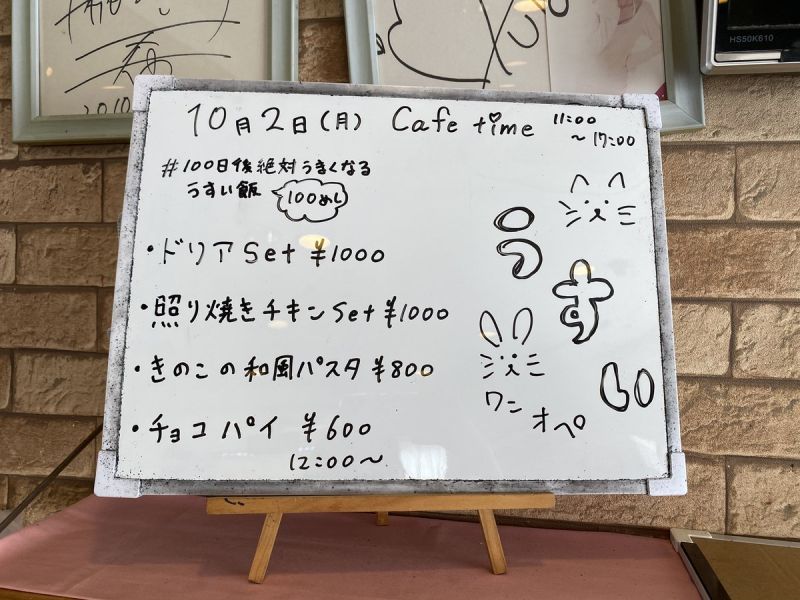 HS50K610
10月2日(月) Cafe time 11:00
～17:00
#100日後絶対うまくなる
うすい飯 100めし
・ドリアSet ¥1000
・照り焼きチキンSet ¥1000
・きのこの和風パスタ ¥800
・チョコパイ ¥600
12:00～
うすい
ワン
オペ